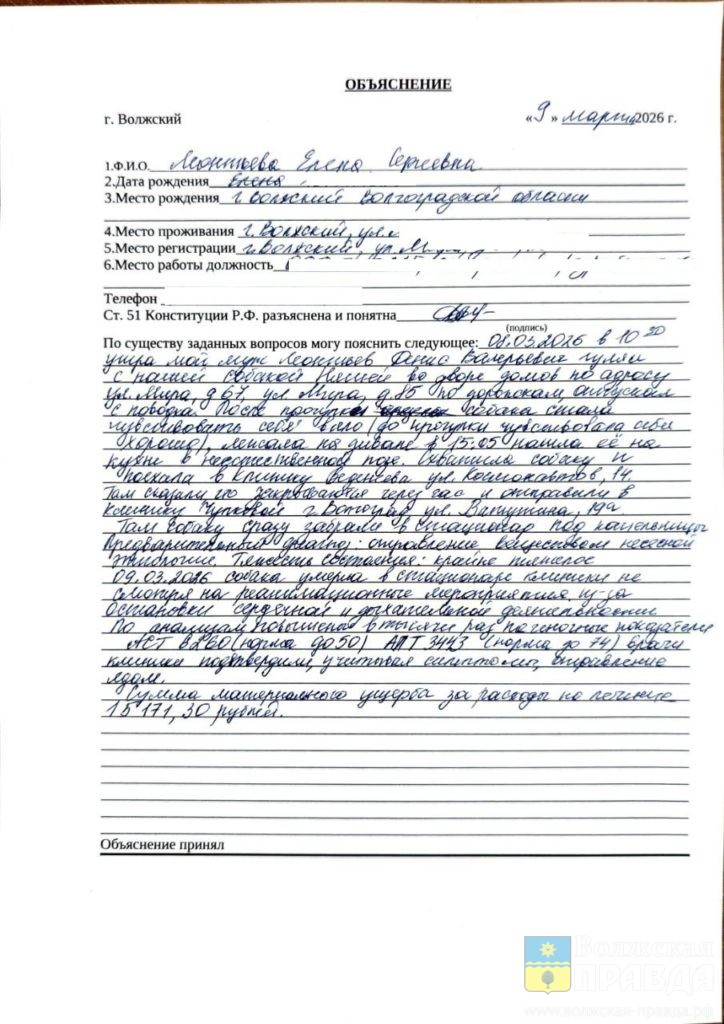 ОБЪЯСНЕНИЕ
г. Волжский «9» марта 2026 г.
1.Ф.И.О. Леонтьева Елена Сергеевна
2.Дата рождения Елена
3.Место рождения г. Волжский Волгоградской области
4.Место проживания г. Волжский, ул.
5.Место регистрации г. Волжский, ул. М
6.Место работы должность
Телефон
Ст. 51 Конституции Р.Ф. разъяснена и понятна
(подпись)
По существу заданных вопросов могу пояснить следующее: 08.03.2026 в 10 30
утра мой муж Леонтьев Денис Валерьевич гулял
с нашей собакой во дворе домов по адресу
ул. Мира, д 67, ул Мира, д. 85 по дорожкам, отпускал
с поводка. После прогулки собака стала
чувствовать себя вяло (до прогулки чувствовала себя
хорошо), лежала на диване в 15:05 нашла её на
кухне в неестественной позе. Схватила собаку и
поехала в клинику ул. Космонавтов, 14.
Там сказали что закрываются через час и отправили в
клинику Чулковой г. Волгоград ул. Ватутина, 19а
Там собаку сразу забрали в стационар под капельницы
Предварительный диагноз: отравление веществом неясной
этиологии. Тяжесть состояния: крайне тяжелое
09.03.2026 собака умерла в стационаре клиники не
смотря на реанимационные мероприятия, из-за
остановки сердечной и дыхательной деятельности
По анализам повышены в тысячи раз печеночные показатели
АСТ 8260 (норма до 50) АЛТ 3443 (норма до 74) врачи
клиники подтвердили, учитывая симптомы, отравление
ядом.
Сумма материального ущерба за расходы на лечение
15 171,30 рублей.
Объяснение принял
Волжская
ПРАВДА
www.волжская-правда.рф